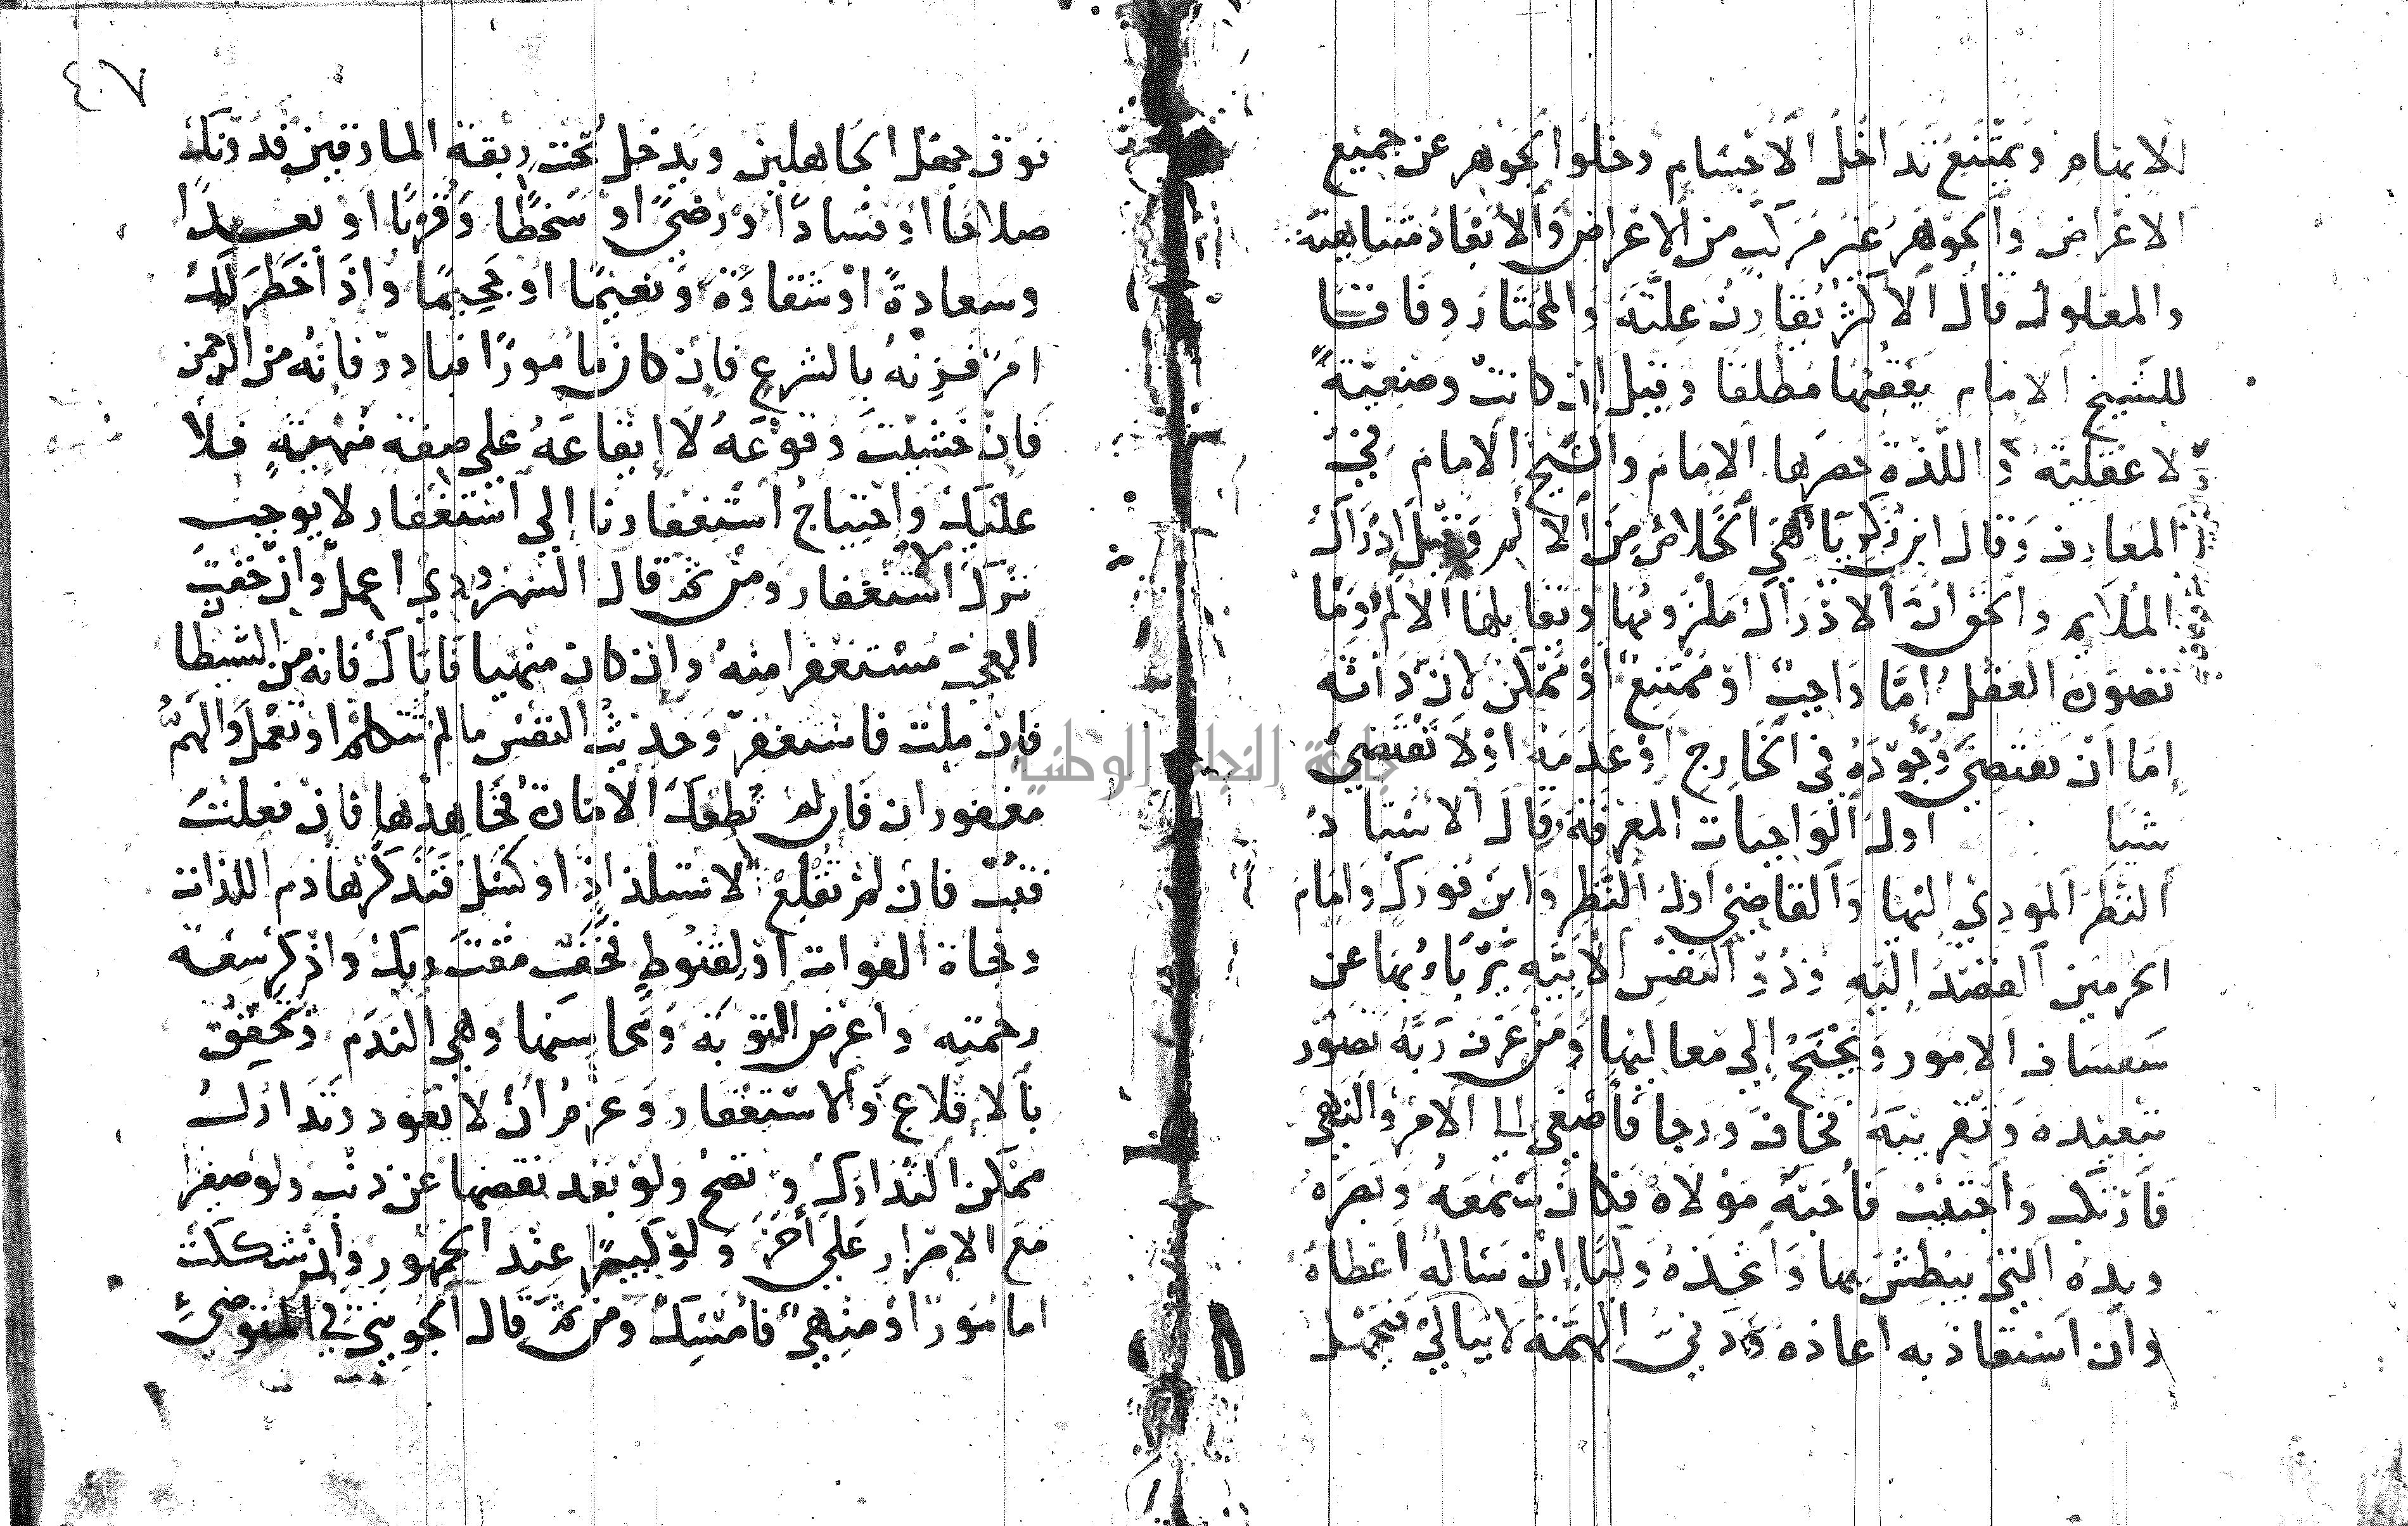 الابهام ويمتنع تداخل الاجسام وخلو الجوهر عن جميع
الاعراض والجوهر غير مركب من الاعراض والابعاد متناهية
والمعلول قال الاكثر يقارن علته والمختار وفاقا
للشيخ الامام يعقبها مطلقا وقيل ان كانت وضعية
لا عقلية و اللذة حصرها الامام والشيخ الامام في
المعارف وقال ابن زكريا هي الخلاص من الالم وقيل ادراك
الملايم والحق ان الادراك ملزومها ويقابلها الالم وما
تصوره العقل اما واجب او ممتنع او ممكن لان ذاته
اما ان تقتضي وجوده في الخارج او عدمه او لا تقتضي
شيا اول الواجبات المعرفة وقال الاستاذ
النظر المودي اليها والقاضي اول النظر وابن فورك وامام
الحرمين القصد اليه وذو النفس الابية يربا بها عن
سفساف الامور ويجنح الى معاليها ومن عرف ربه تصور
تبعيده وتقريبه فخاف ورجا فأصغى الى الامر والنهي
فارتكب واجتنب فأحبه مولاه فكان سمعه وبصره
ويده التي يبطش بها واتخذه وليا ان ساله اعطاه
وان استعاذ به اعاذه ودني الهمة لا يبالي فيجهل
٤٠٧
فوق جهل الجاهلين ويدخل تحت ربقة المارقين فدونك
صلاحا او فسادا ورضى او سخطا وقربا او بعدا
وسعادة او شقاوة ونعيما او جحيما واذا خطر لك
امر فزنه بالشرع فان كان مامورا فبادر فانه من الرحمن
فان خشيت وقوعه لا ايقاعه على صفة منهية فلا
عليك واحتياج استغفارنا الى استغفار لا يوجب
ترك الاستغفار ومن ثم قال السهروردي اعمل وان خفت
العجب مستغفرا منه وان كان منهيا فاياك فانه من الشيطا
فان ملت فاستغفر وحديث النفس مالم تتكلم او تعمل والهم
مغفوران فان لم تطعك الامارة فجاهدها فان فعلت
فتب فان لم تقلع لاستلذاذ او كسل فتذكر هاذم اللذات
وفجاة الفوات او لقنوط فخف مقت ربك واذكر سعة
رحمته واعرض التوبة ومحاسنها وهي الندم وتحقق
بالاقلاع والاستغفار وعزم ان لا يعود وتدارك
ممكن التدارك وتصح ولو بعد نقضها عن ذنب ولو صغيرا
مع الاصرار على اخر ولو كبيرا عند الجمهور وان شككت
امامور او منهي فأمسك ومن ثم قال الجويني في المتوضئ